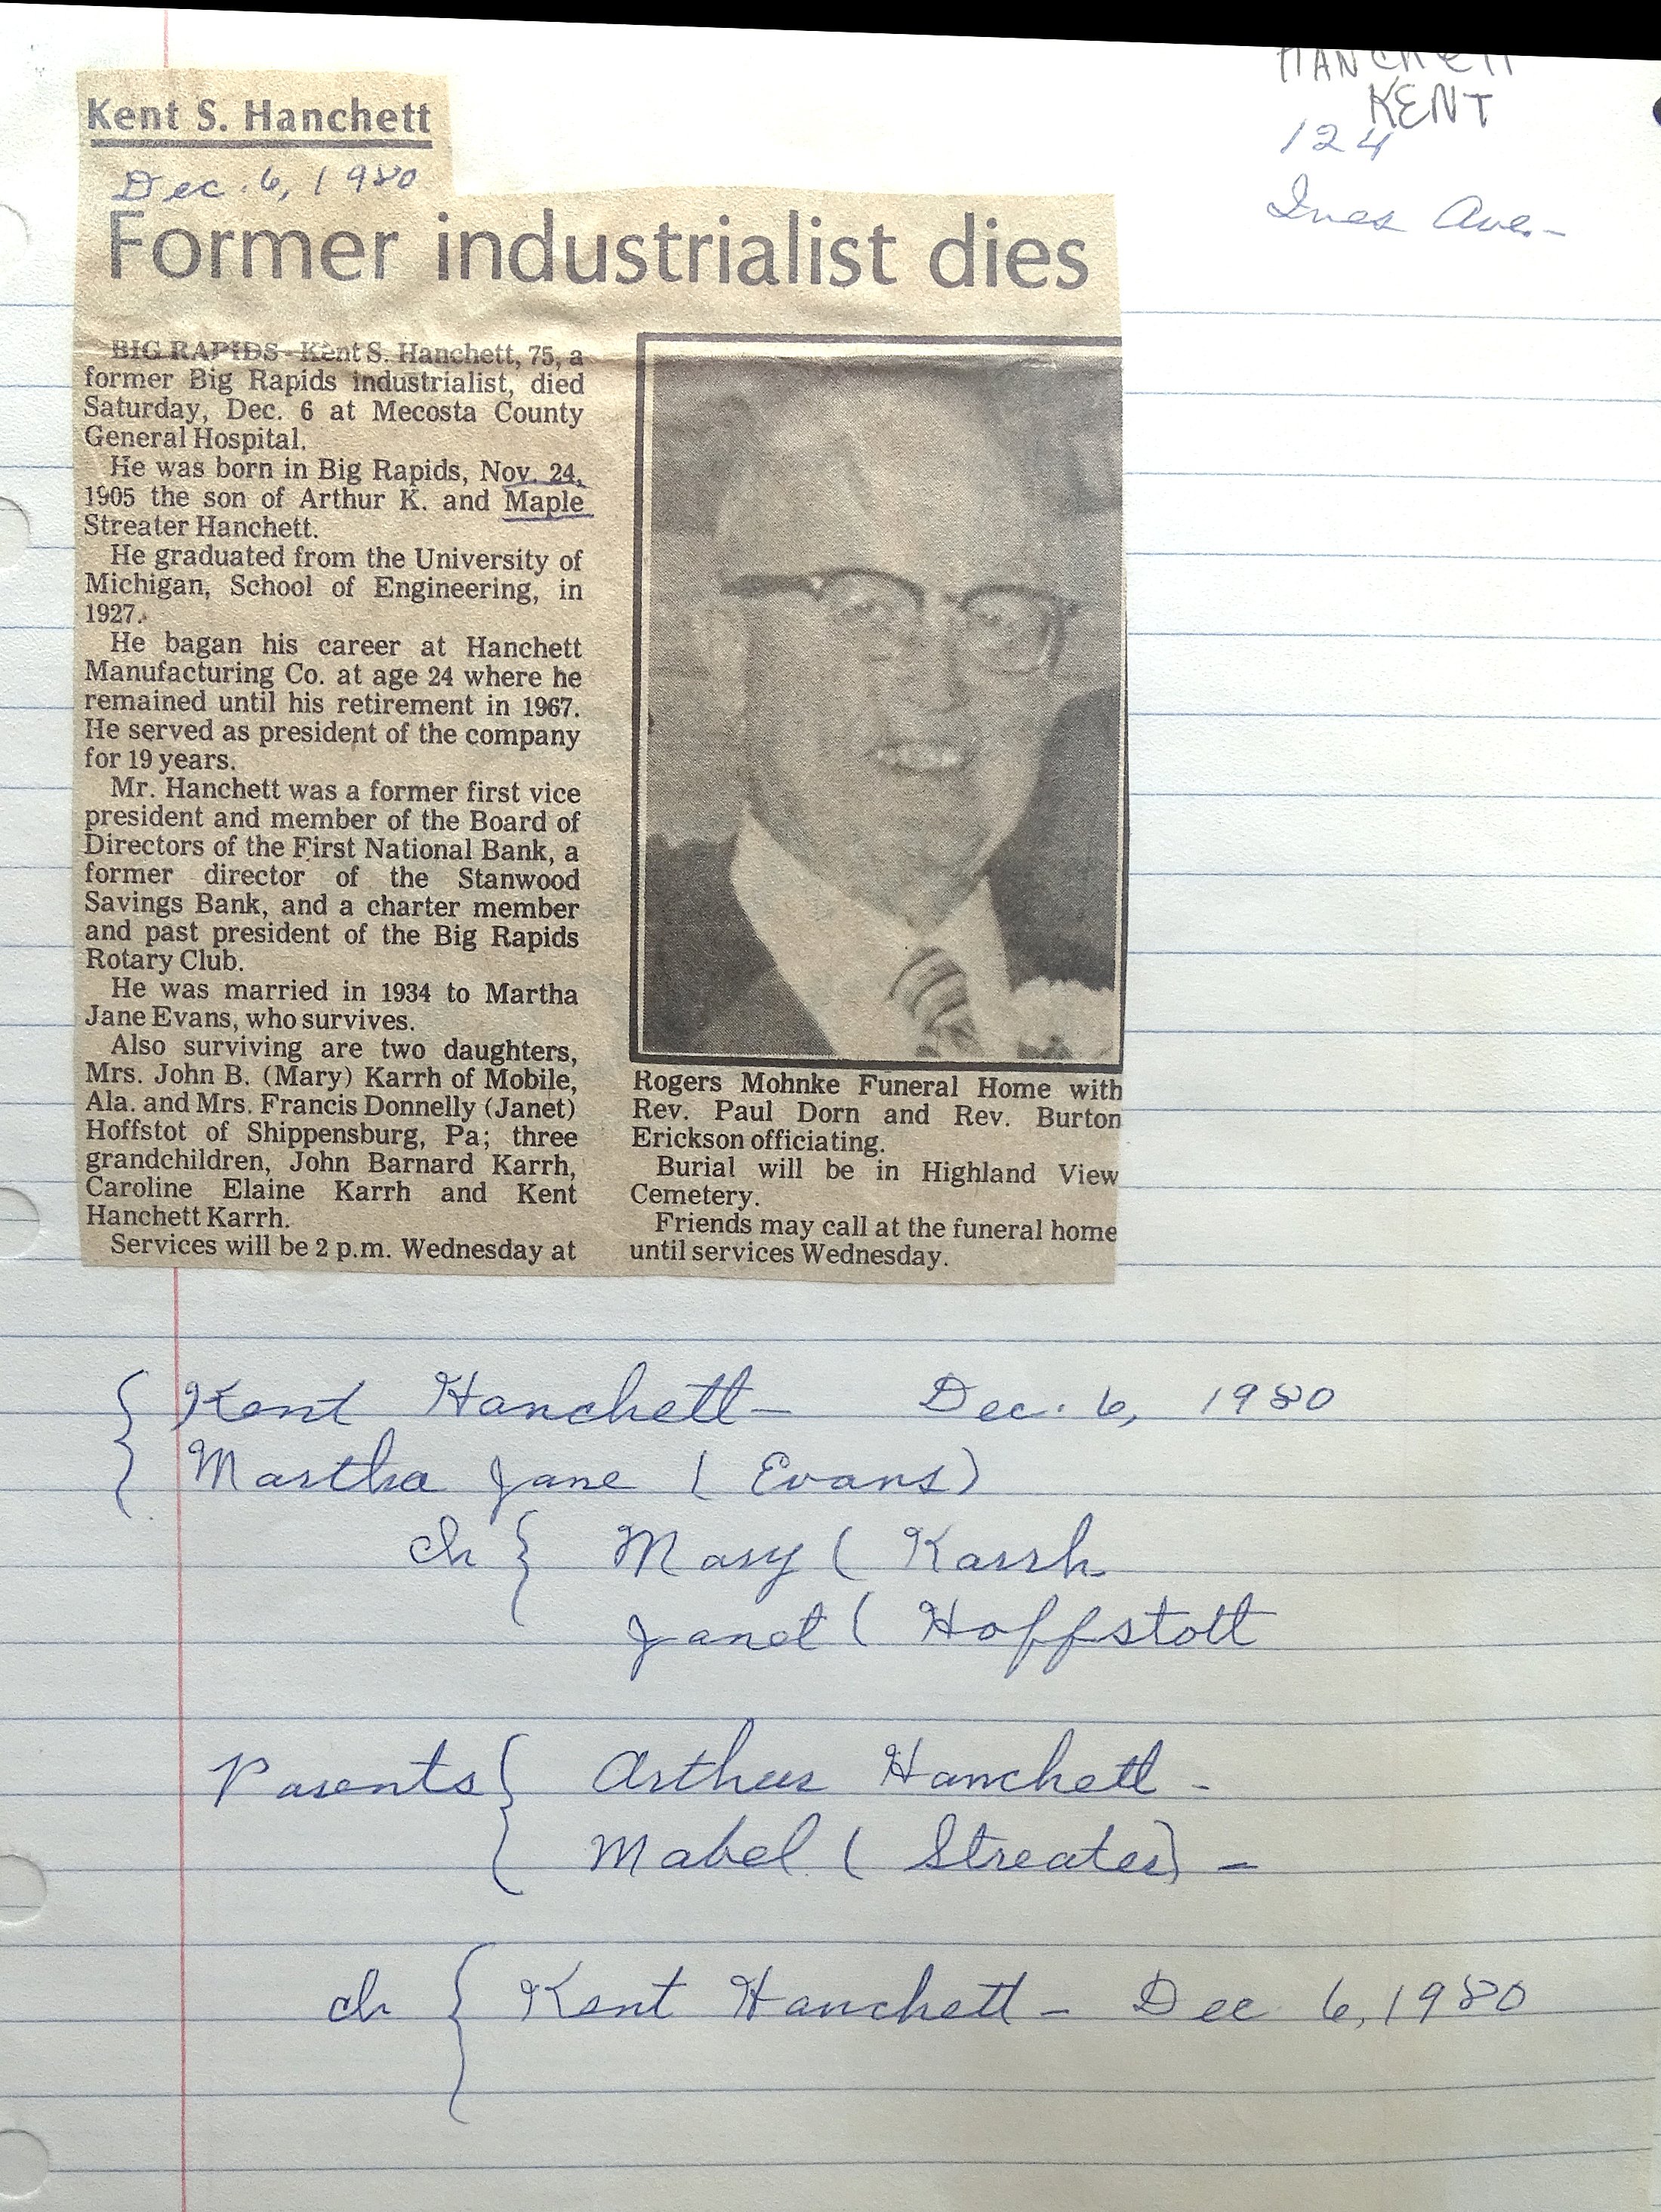 HANCHETT
KENT
124
Ives Ave.-
Kent S. Hanchett
Dec. 6, 1980
Former industrialist dies
BIG RAPIDS-Kent S. Hanchett, 75, a
former Big Rapids industrialist, died
Saturday, Dec. 6 at Mecosta County
General Hospital.
He was born in Big Rapids, Nov. 24,
1905 the son of Arthur K. and Maple
Streater Hanchett.
He graduated from the University of
Michigan, School of Engineering, in
1927.
He bagan his career at Hanchett
Manufacturing Co. at age 24 where he
remained until his retirement in 1967.
He served as president of the company
for 19 years.
Mr. Hanchett was a former first vice
president and member of the Board of
Directors of the First National Bank, a
former director of the Stanwood
Savings Bank, and a charter member
and past president of the Big Rapids
Rotary Club.
He was married in 1934 to Martha
Jane Evans, who survives.
Also surviving are two daughters,
Mrs. John B. (Mary) Karrh of Mobile,
Ala. and Mrs. Francis Donnelly (Janet)
Hoffstot of Shippensburg, Pa; three
grandchildren, John Barnard Karrh,
Caroline Elaine Karrh and Kent
Hanchett Karrh.
Services will be 2 p.m. Wednesday at
Rogers Mohnke Funeral Home with
Rev. Paul Dorn and Rev. Burton
Erickson officiating.
Burial will be in Highland View
Cemetery.
Friends may call at the funeral home
until services Wednesday.
{ Kent Hanchett- Dec. 6, 1980
Martha Jane (Evans)
ch { Mary ( Karrh
Janet ( Hoffstott
Parents { Arthur Hanchett -
Mabel ( Streater) -
ch { Kent Hanchett - Dec 6, 1980